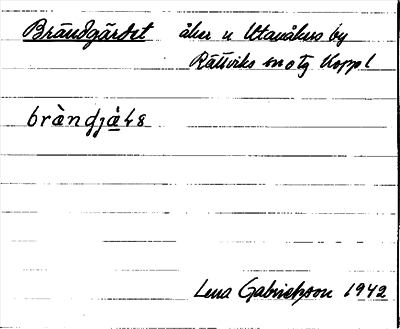 Brändgärdet åker n Utanåkers by
Rättviks sn otg Kopp l
bràndjà̤ɫs
Lena Gabrielsson 1942